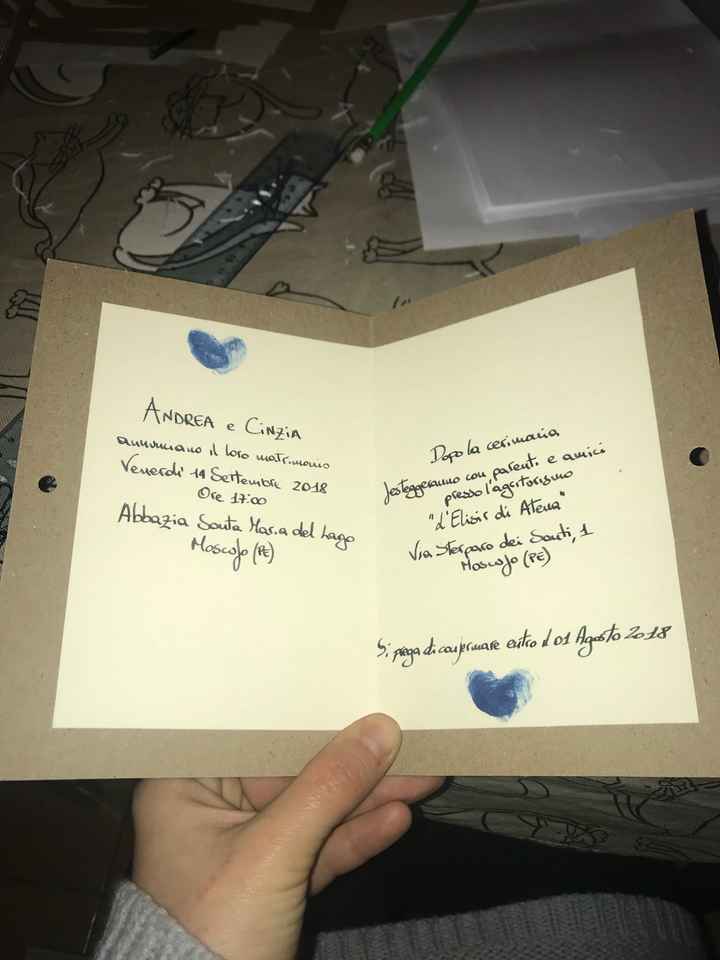 ANDREA e CINZIA
annunciano il loro matrimonio
Venerdì 14 Settembre 2018
Ore 17:00
Abbazia Santa Maria del Lago
Moscufo (PE)
Dopo la cerimonia
festeggeranno con parenti e amici
presso l'agriturismo
"L'Elisir di Atena"
Via Sterparo dei Santi, 1
Moscufo (PE)
Si prega di confermare entro il 01 Agosto 2018